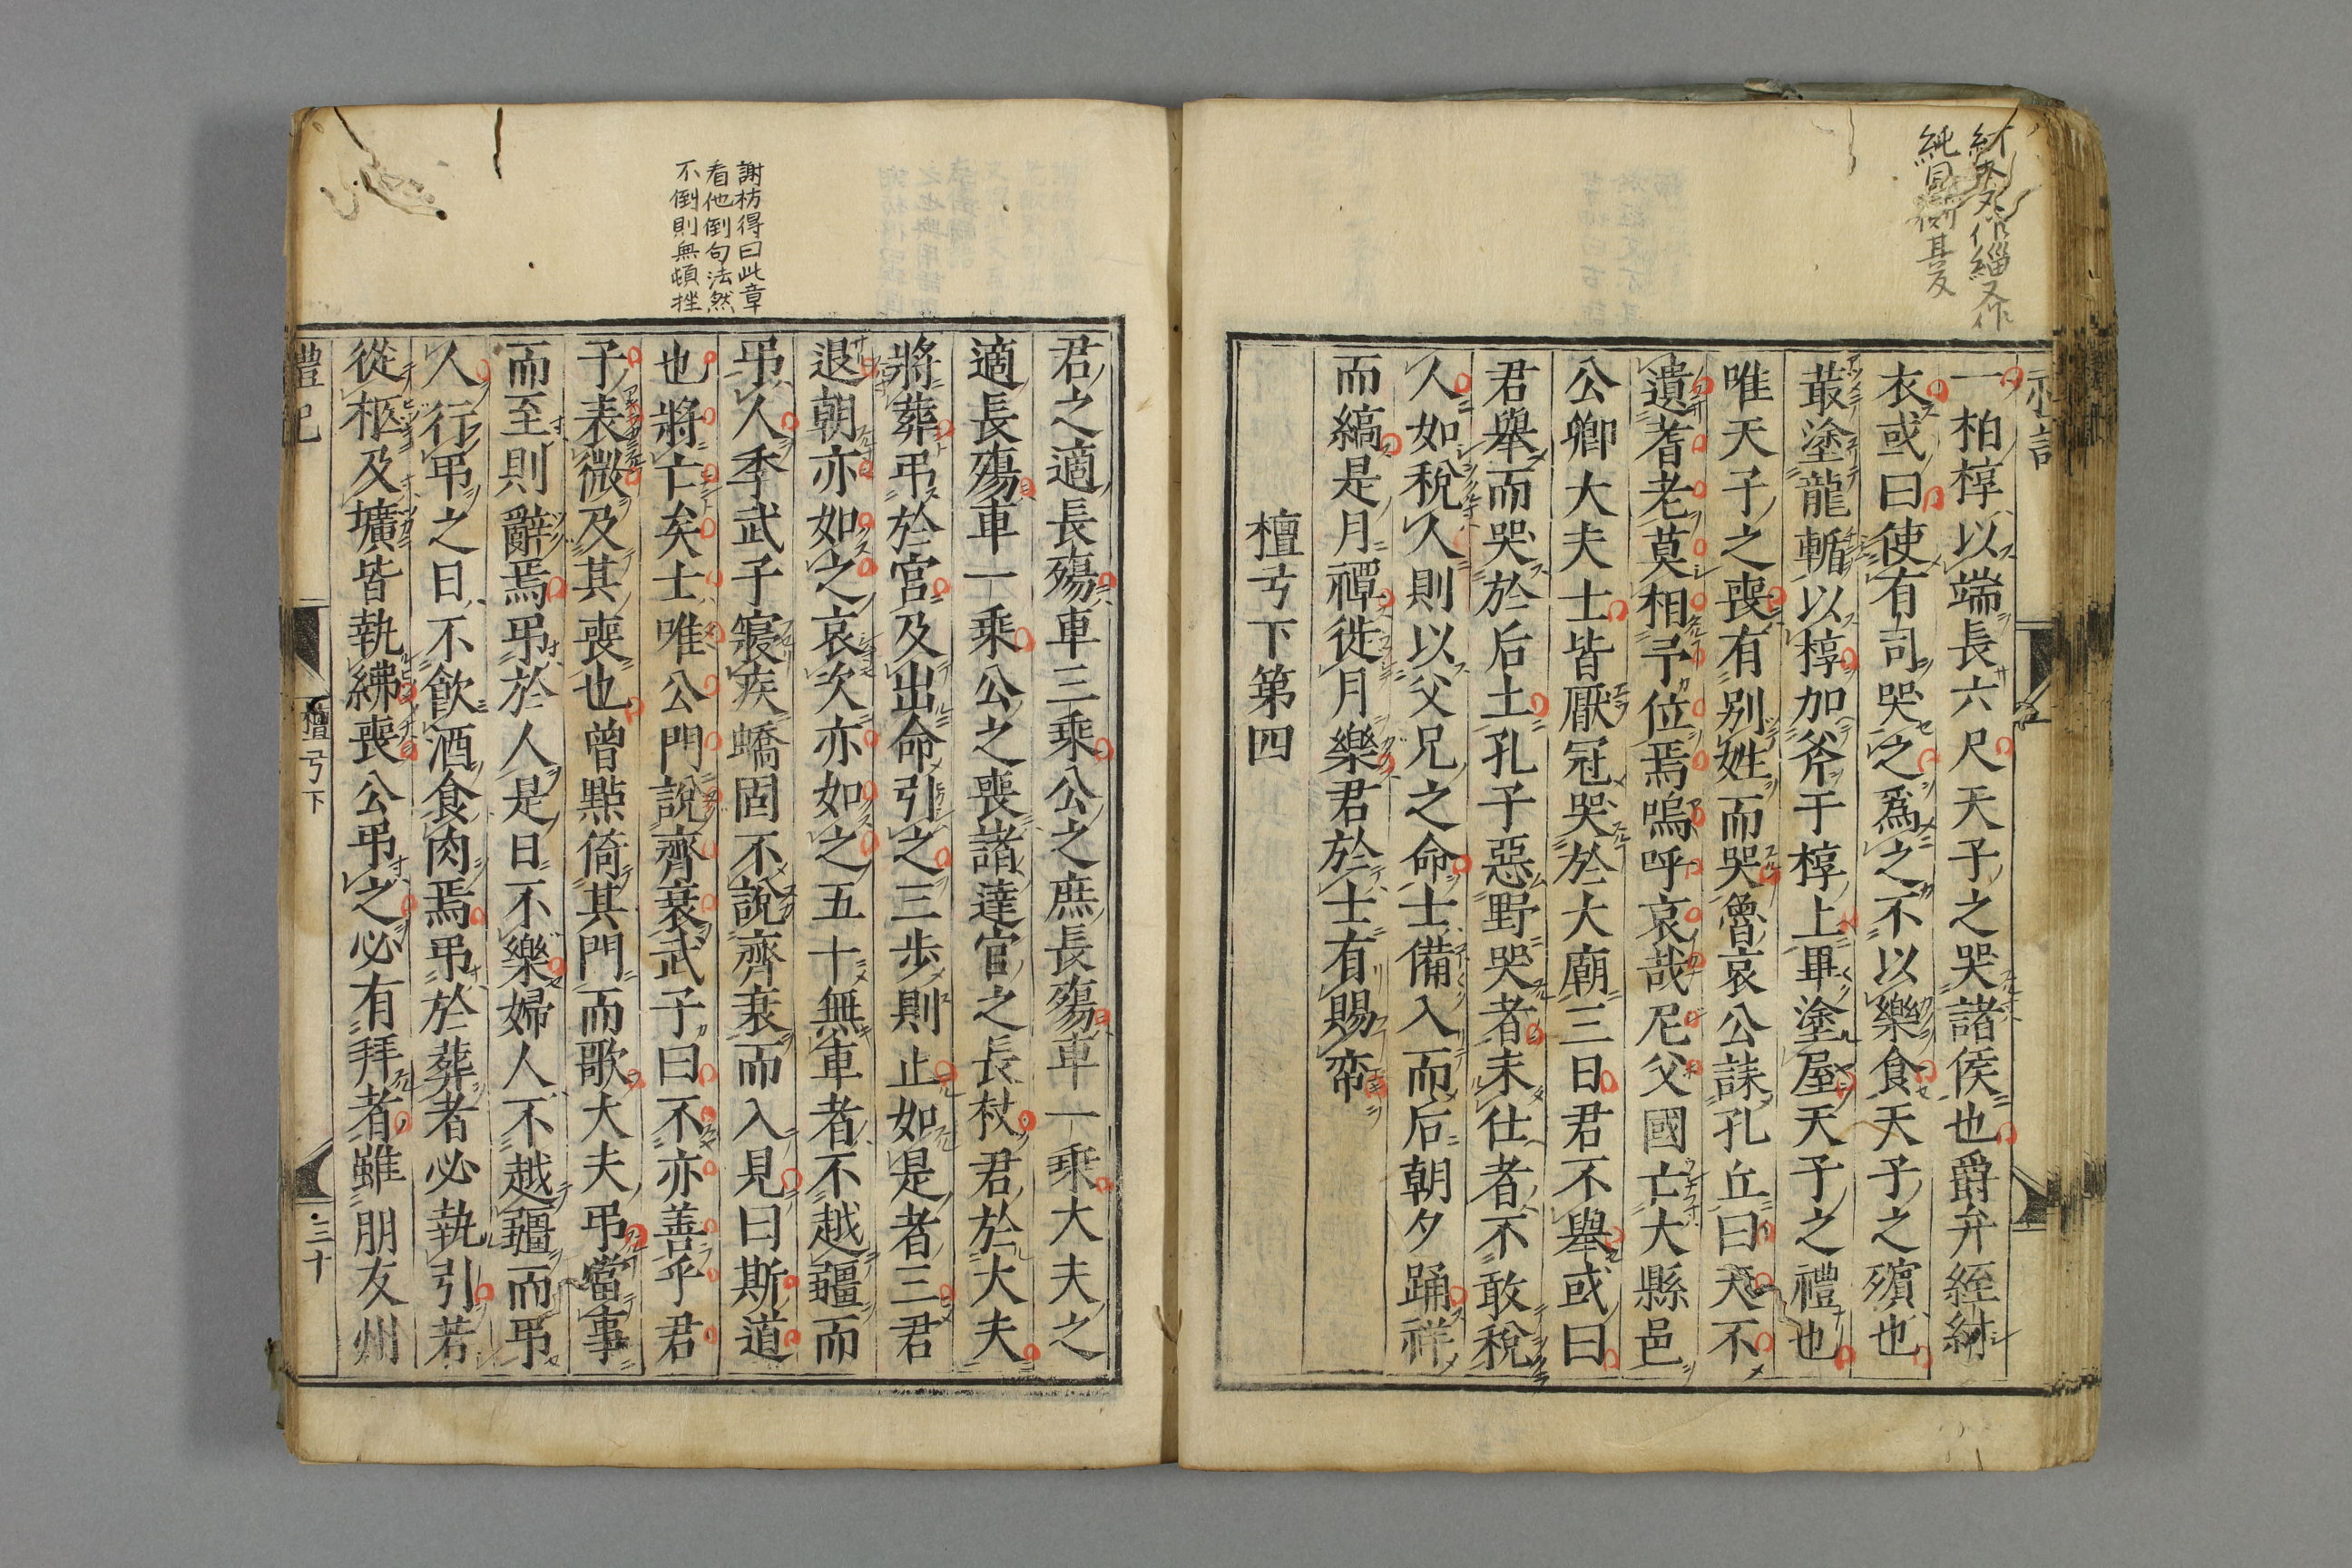 一柏椁以端長六尺天子之哭諸侯也爵弁絰紂
衣或曰使有司哭之爲之不以樂食天子之殯也
菆塗龍輴以椁加斧于椁上畢塗屋天子之禮也
唯天子之喪有别姓而哭魯哀公誄孔丘曰天不
遺耆老莫相予位焉嗚呼哀哉尼父國亡大縣邑
公卿大夫士皆厭冠哭於大廟三日君不舉或曰
君舉而哭於后土孔子惡野哭者未仕者不敢稅
人如稅人則以父兄之命士備入而后朝夕踊祥
而縞是月禫徙月樂君於士有賜帟
檀弓下第四
君之適長殤車三乘公之庶長殤車一乘大夫之
適長殤車一乘公之喪諸達官之長杖君於大夫
將葬弔於宮及出命引之三步則止如是者三君
退朝亦如之哀次亦如之五十無車者不越疆而
弔人季武子寢疾蟜固不說齊衰而入見曰斯道
也將亡矣士唯公門說齊衰武子曰不亦善乎君
子表微及其喪也曾點倚其門而歌大夫弔當事
而至則辭焉弔於人是日不樂婦人不越疆而弔
人行弔之日不飮酒食肉焉弔於葬者必執引若
從柩及壙皆執紼喪公弔之必有拜者雖朋友州
禮記
檀弓下
三十
謝枋得曰此章
看他倒句法然
不倒則無頓挫